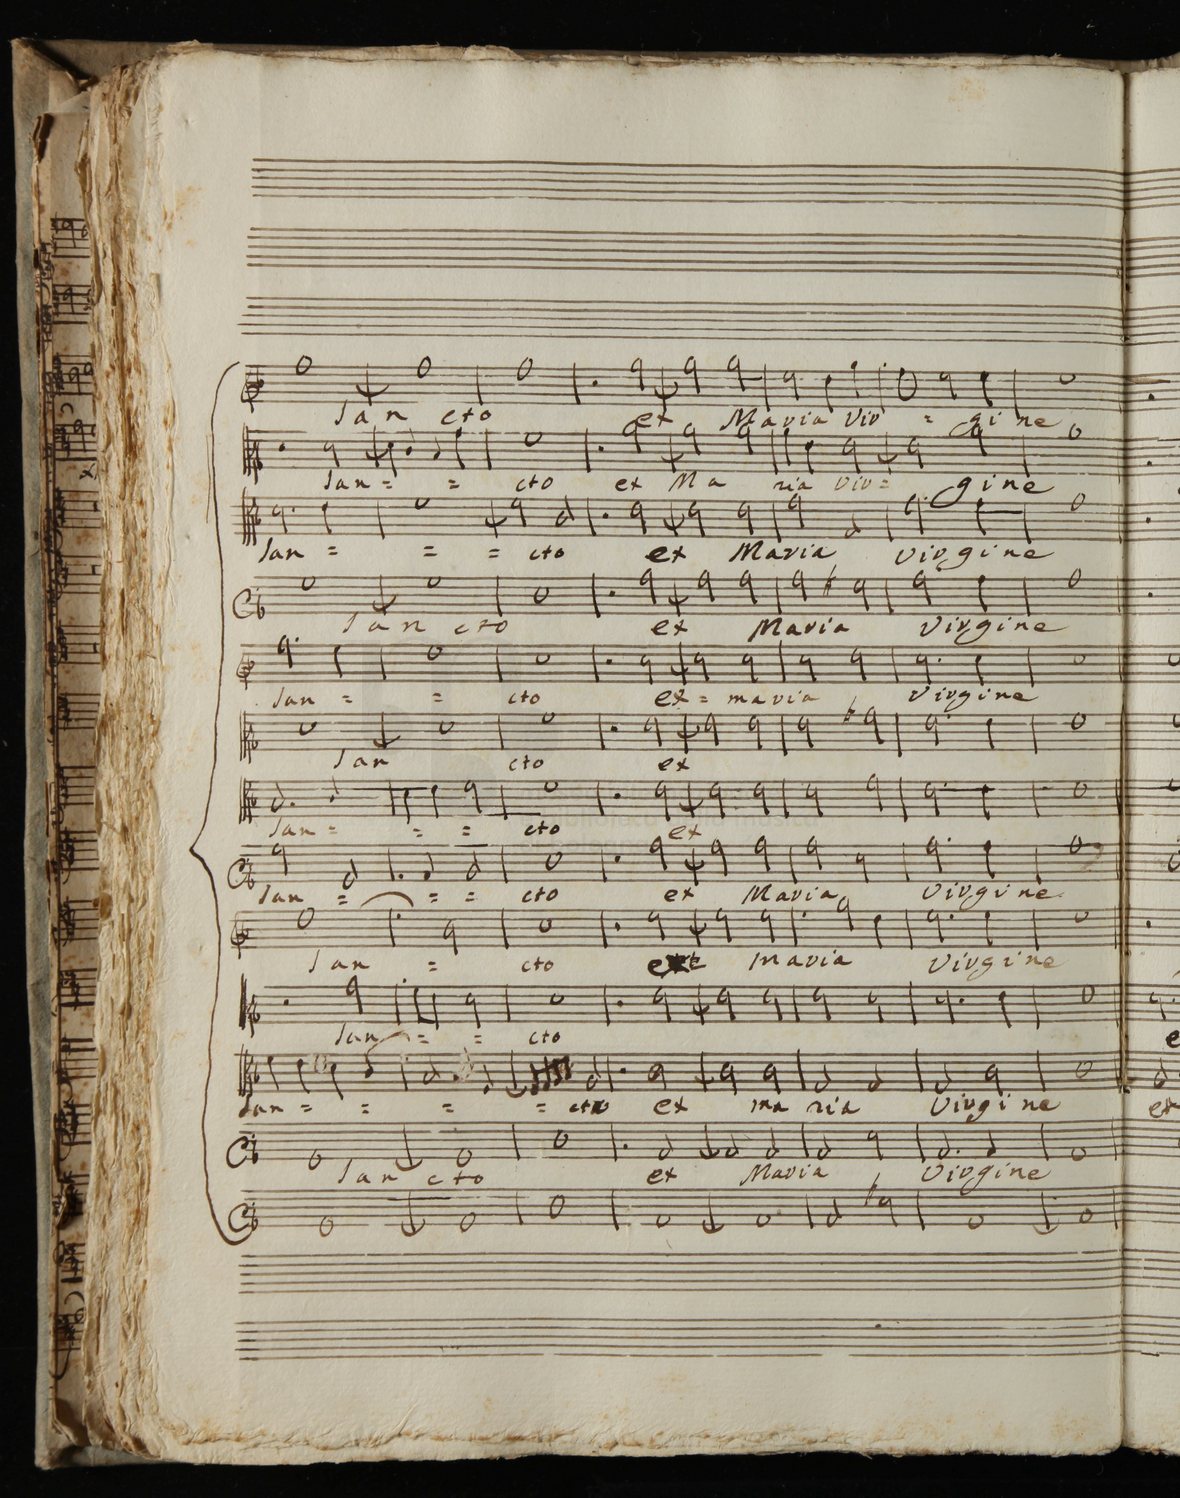 San cto ex Maria Vir = gine
San = = cto ex Ma ria Vir = gine
San = = = cto ex Maria Virgine
San cto ex Maria Virgine
San = = cto ex = maria Virgine
San cto ex
San = = = cto ex
San = = = cto ex Maria Virgine
San = cto maria Virgine
San = = cto
San = = = = cto ex ma ria Virgine
San cto ex Maria Virgine